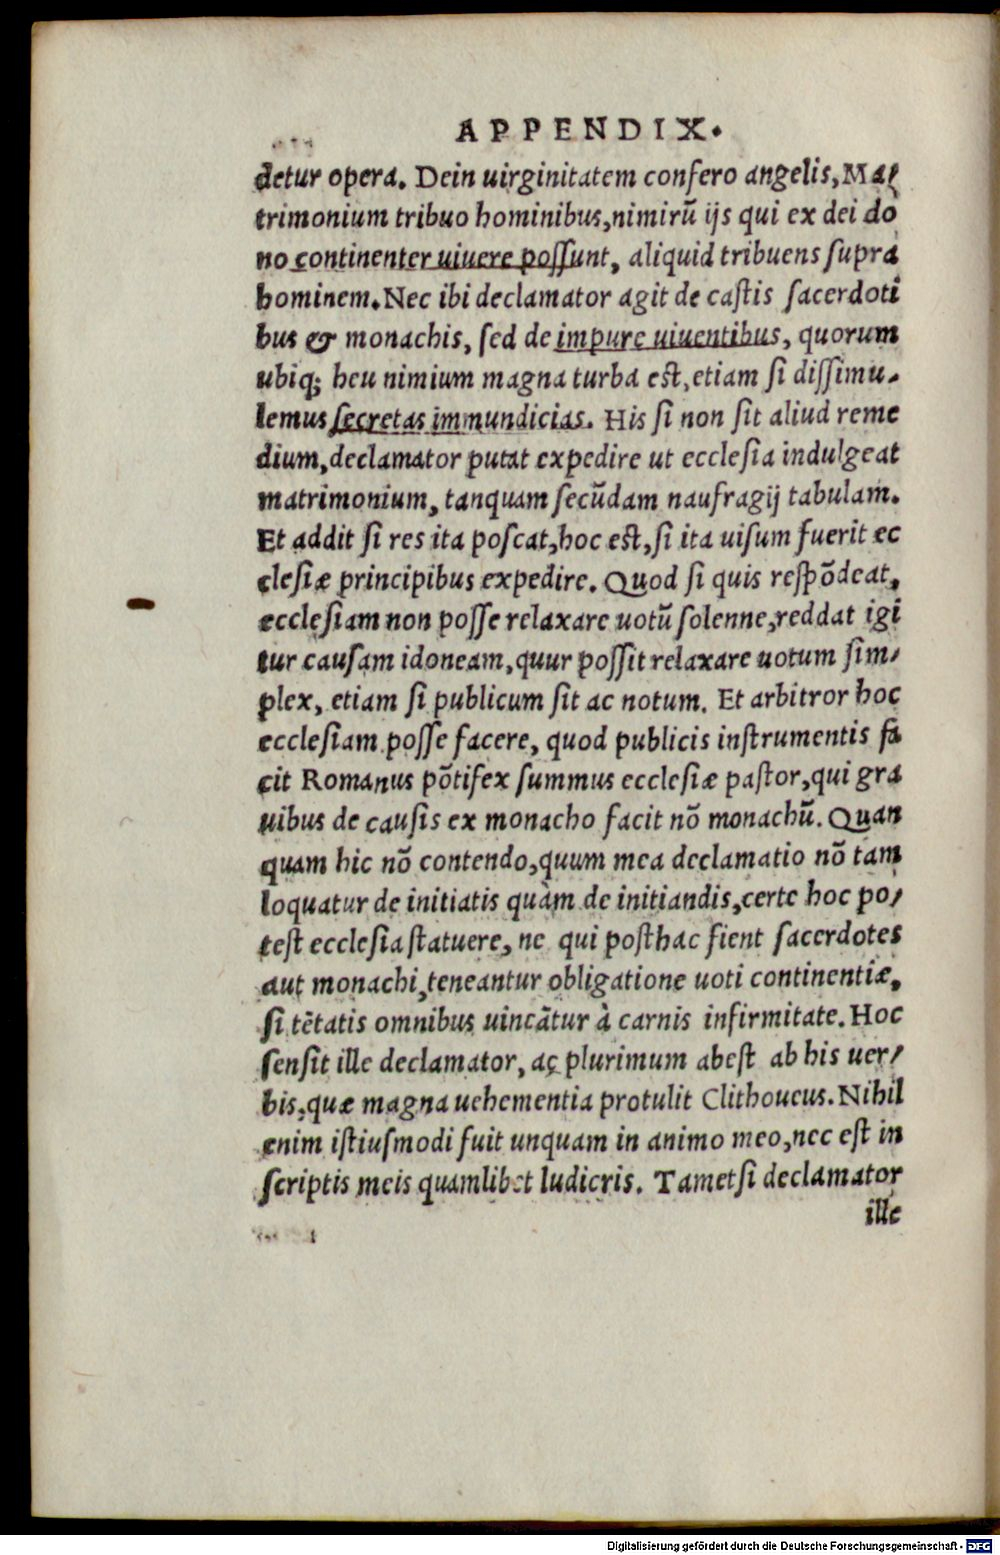 APPENDIX.
detur opera. Dein uirginitatem confero angelis, Ma⸗
trimonium tribuo hominibus, nimirũ ijs qui ex dei do
no continenter uiuere poſſunt, aliquid tribuens ſupra
hominem. Nec ibi declamator agit de caſtis ſacerdoti
bus & monachis, ſed de impure uiuentibus, quorum
ubiq; heu nimium magna turba eſt, etiam ſi diſſimu⸗
lemus ſecretas immundicias. His ſi non ſit aliud reme
dium, declamator putat expedire ut eccleſia indulgeat
matrimonium, tanquam ſecũdam naufragij tabulam.
Et addit ſi res ita poſcat, hoc eſt, ſi ita uiſum fuerit ec
cleſiæ principibus expedire. Quod ſi quis reſpõdeat,
eccleſiam non poſſe relaxare uotũ ſolenne, reddat igi
tur cauſam idoneam, quur poſſit relaxare uotum ſim⸗
plex, etiam ſi publicum ſit ac notum. Et arbitror hoc
eccleſiam poſſe facere, quod publicis inſtrumentis fa
cit Romanus põtifex ſummus eccleſiæ paſtor, qui gra
uibus de cauſis ex monacho facit nõ monachũ. Quan
quam hic nõ contendo, quum mea declamatio nõ tam
loquatur de initiatis quàm de initiandis, certe hoc po⸗
teſt eccleſia ſtatuere, ne qui poſthac fient ſacerdotes
aut monachi, teneantur obligatione uoti continentiæ,
ſi tẽtatis omnibus uincãtur à carnis infirmitate. Hoc
ſenſit ille declamator, ac plurimum abeſt ab his uer⸗
bis, quæ magna uehementia protulit Clithoueus. Nihil
enim iſtiuſmodi fuit unquam in animo meo, nec eſt in
ſcriptis meis quamlibet ludicris. Tametſi declamator
ille
Digitalisierung gefördert durch die Deutsche Forschungsgemeinschaft - DFG